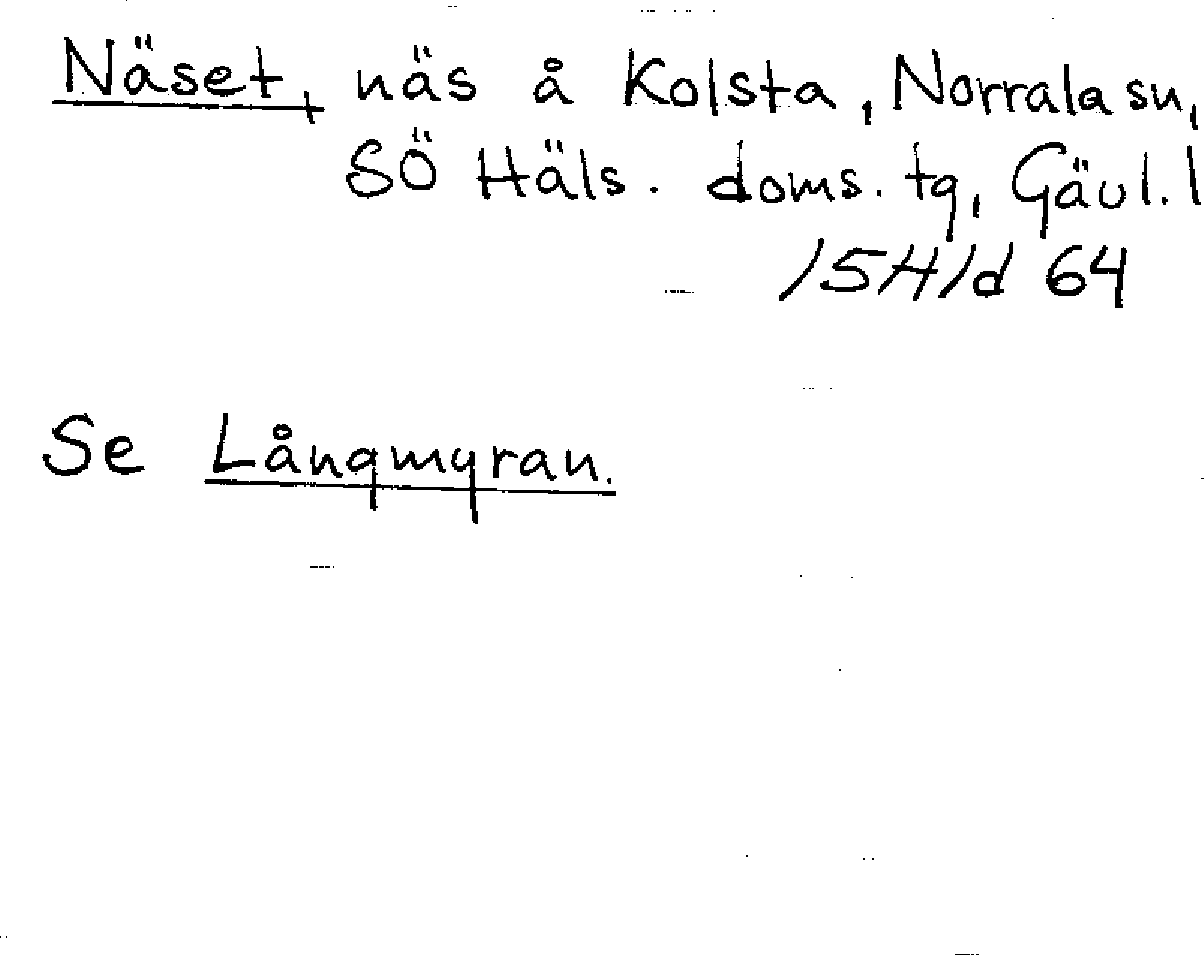 Näset, näs å Kolsta, Norrala sn,
SÖ Häls. doms. tg, Gävl. l
15H1d 64
Se Långmyran.